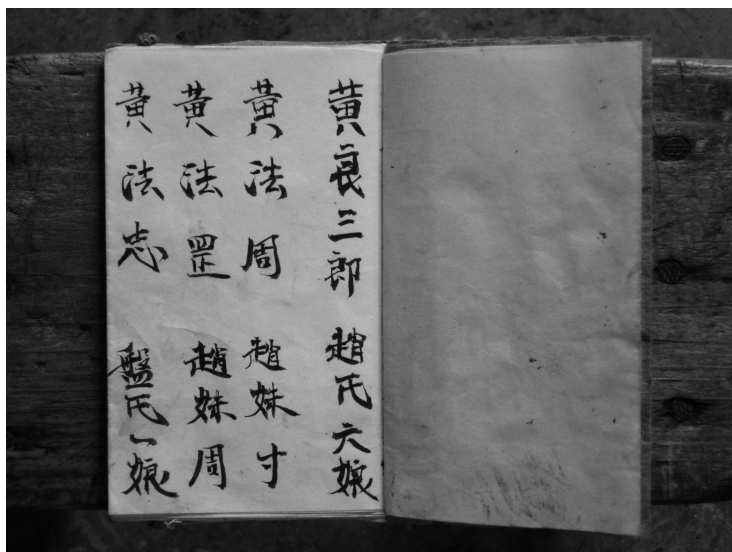 黄良三郎 趙氏六娘
黄法周 趙妹寸
黄法罡 趙妹周
黄法志 盤氏一娘